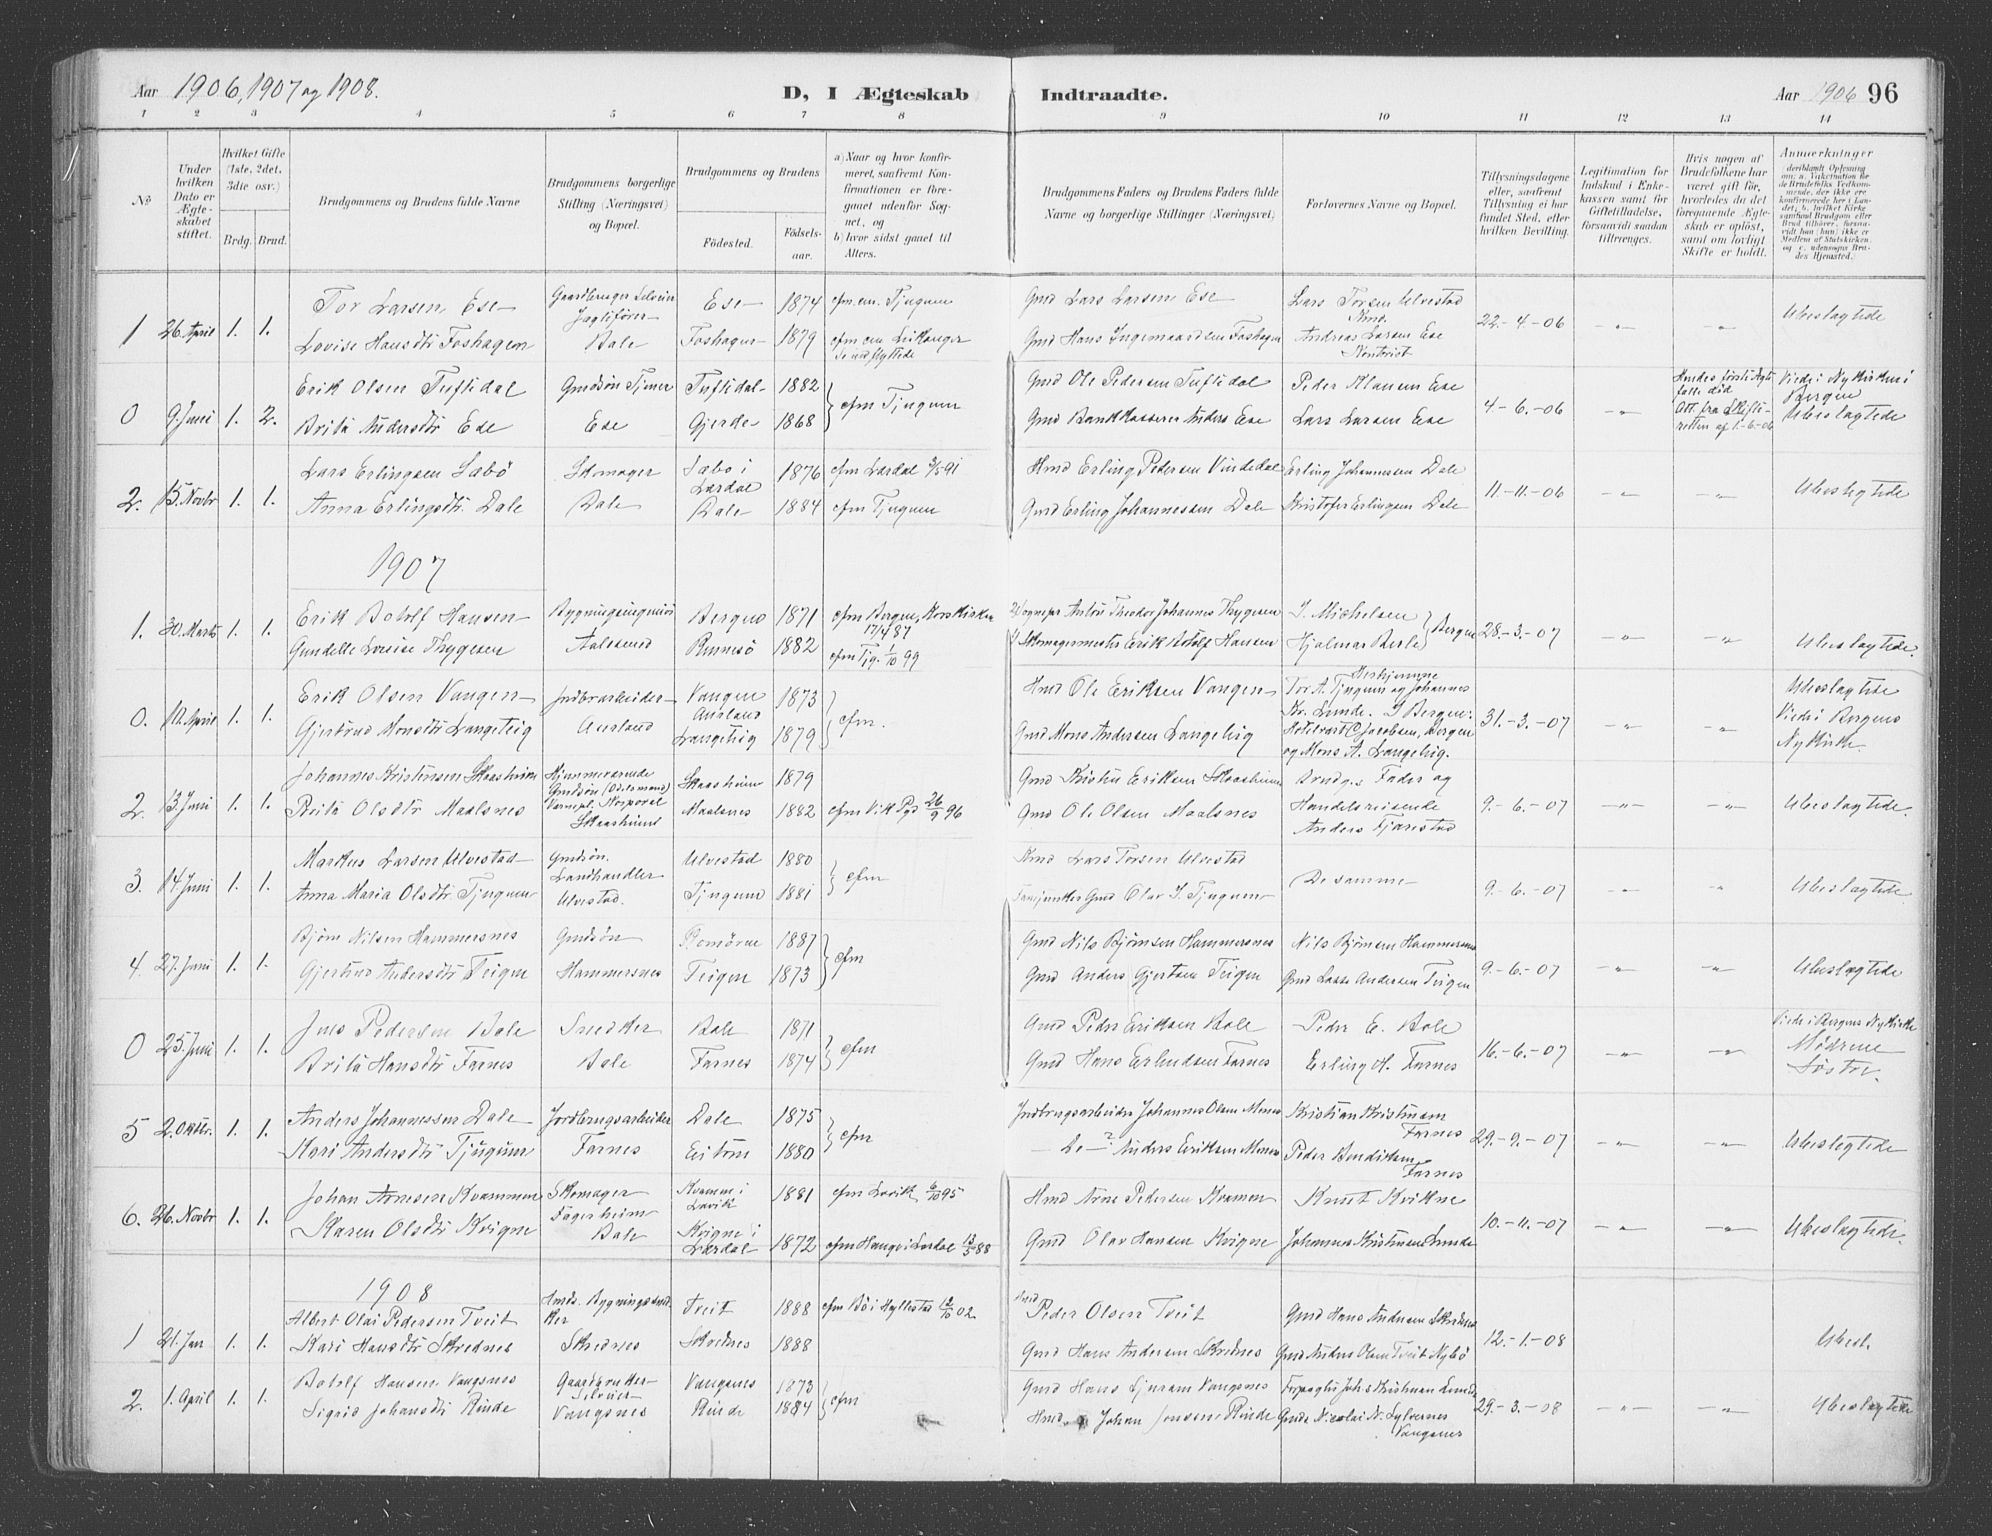 Aar 1906, 1907 og 1908.
D, I Ægteskab Indtraadte.
Aar 1906 96
1 2 3 4 5 6 7 8 9 10 11 12 13 14
№
Under hvilken Dato er Ægteskabet stiftet.
Hvilket Gifte (1ste, 2det, 3die osv.)
Brdg. Brud.
Brudgommens og Brudens fulde Navne
Brudgommens borgerlige Stilling (Næringsvei) og Bopæl.
Brudgommens og Brudens
Fødested.
Fødselsaar.
a) Naar og hvor konfirmeret, saafremt Konfirmationen er foregaaet udenfor Sognet, og
b) hvor sidst gaaet til Alters.
Brudgommens Faders og Brudens Faders fulde Navne og borgerlige Stillinger (Næringsvei)
Forlovernes Navne og Bopæl.
Tillysningsdagene eller, saafremt Tillysning ei har fundet Sted, efter hvilken Bevilling.
Legitimation for Indskud i Enkekassen samt for Giftetilladelse, forsaavidt saadan tiltrænges.
Hvis nogen af Brudefolkene har været gift før, hvorledes da det foregaaende Ægteskab er opløst, samt om lovligt Skifte er holdt.
Anmærkninger
1 26 April 1. 1. Tor Larsen Ese Ese 1874 cfm. Tjugum Gmd Lars Larsen Ese Lars Torsen Ulvestad
Lovise Hansdtr Foshagen Bale Foshagen 1879 Gmd Hans Ingemaardsen Foshagen Andreas Larsen Ese 22.-4-06 Ubeslægtede
0 9. Juni 1. 2. Erik Olsen Tuftedal Gmdsøn Tjener Tuftedal 1882 cfm Tjugum Gmd Ole Pedersen Tuftedal Peder Klausen Ese
Brita Andersdtr Ese Ese Gjerde 1868 Gmd Bankkasserer Anders Ese Lars Larsen Ese 4-6.-06 Viede i Nykirken i Bergen Ubeslægtede
2. 15. Novbr 1. 1. Lars Erlingsen Sæbø Skomager Sæbø i Lærdal 1876 cfm Lærdal 3/5 91 Hmd Erling Pedersen Vindedal Erling Johannessen Dale
Anna Erlingsdtr. Dale Dale Dale 1884 cfm Tjugum Gmd Erling Johannessen Dale Kristofer Erlingsen Dale 11-11-06 Ubeslegtede
1907
1. 30. Marts 1. 1. Erik Botolf Hansen Bygningsingeniør Bergen 1871 cfm Bergen, Korskirken 17/4 87 Sognepr Anton Theodor Johannes Thygesen J. Michelsen
Gundelle Louise Thygesen Aalesund Rennesø 1882 cfm Tjg. 1/10 99 Skomagermester Erik Botolf Hansen Hjalmar Berle Bergen 28-3-07 Ubeslægtede.
0. 10. April 1. 1. Erik Olsen Vangen Jordbrarbeider Vangen Aurland 1873 cfm. Hmd Ole Eriksen Vangen Tor A. Tjugum og Johannes Kr. Lunde. I Bergen:
Gjertrud Monsdtr Langeteig Aurland Langeteig 1879 Gmd Mons Andersen Langeteig Jacobsen, Bergen og Mons A. Langeteig. 31.-3.-07 Ubeslægtede Viede i Bergens Nykirke.
2. 13. Juni 1. 1. Johannes Kristensen Skaasheim Hjemmeværende Gmdsøn (Odelsmand) Skaasheim 1879 Gmd Kristen Eriksen Skaasheim Brudg.s Fader og
Brita Olsdtr Maalsnes Skaasheim Maalsnes 1882 cfm Vik Pgd 26/9 96 Gmd Ole Olsen Maalsnes Handelsreisende Anders Fjærestad 9.-6.-07 Ubeslægtede.
3. 14 Juni 1. 1. Markus Larsen Ulvestad Gmdsøn. Landhandler Ulvestad 1880 cfm Lars Torsen Ulvestad De samme
Anna Maria Olsdtr. Tjugum Ulvestad. Tjugum 1881 Gmd Olav I. Tjugum 9.-6.-07 Ubeslægtede
4. 27. Juni 1. 1. Bjørn Nilsen Hammersnes Gmdsøn Romøren 1887 cfm Gmd Nils Bjørnsen Hammersnes Nils Bjørnsen Hammersnes
Gjertrud Andersdtr Teigen Hammersnes Teigen 1873 Gmd Anders Gjertsen Teigen Gmd Lasse Andersen Teigen 9.-6.-07 Ubeslægtede
0 25. Juni 1. 1. Jens Pedersen Bale Snedker Bale 1871 cfm Gmd Peder Eriksen Bale Peder E. Bale
Brita Hansdtr Farnes Bale Farnes 1874 Gmd Hans Erlendsen Farnes Erling H. Farnes 16.-6.-07 Viede i Bergens Nykirke Mødrene Søstre.
5 2. Oktbr. 1. 1. Anders Johannessen Dale Jordbrugsarbeider Dale 1875 cfm Jndbrugsarbeider Johannes Olsen Menes Kristian Kristensen Farnes
Kari Andersdtr Tjugum Farnes 1880 De Anders Eriksen Menes Peder Bendiksen Farnes 29.-9.-07 Ubeslegtede
6. 26. Novbr 1. 1. Johan Arnesen Kvammen Skomager Kvamme i Lavik 1881 cfm Lavik 6/10 95 Hmd Arne Pedersen Kvamen Knut Kvikne
Karen Olsdtr Kvigne Fagerheim Bale Kvigne i Lærdal 1872 cfm Hauge i Lærdal 13/5 88 Gmd Olav Hansen Kvigne Johannes Kristensen Lunde 10.-11.-07 Ubeslægtede.
1908
1 21. Jan 1. 1. Albert Olai Pedersen Tveit Tveit 1888 cfm Bø i Hyllestad 12/10 02 Peder Olsen Tveit Gmd Hans Andersen Skrednes
Kari Hansdtr Skrednes Skrednes Skrednes 1888 Gmd Hans Andersen Skrednes Gmd Anders Olsen Tveit Nybø 12.-1.-08 Ubesl.
2. 1. April 1. 1. Botolf Hansen Vangsnes Vangsnes 1873 cfm Gmd Hans Sjursen Vangsnes Forpagter Johs Kristensen Lunde
Sigrid Johansdtr Rinde Vangsnes Rinde 1884 Hmd Johan Jensen Rinde Gmd. Nicolai N. Sylvernes Vangsnes 29.-3.-08 Ubeslægtede